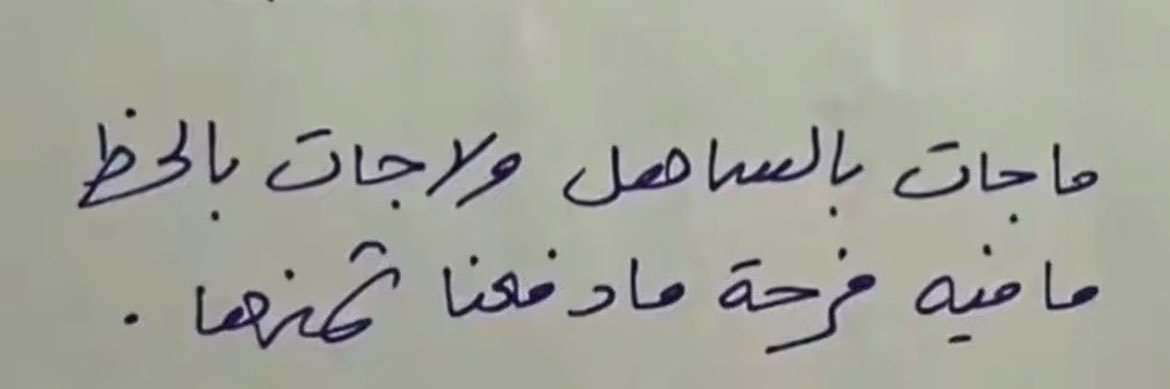 ماجات بالساهل ولاجات بالحظ
مافيه فرحة مادفعنا ثمنها .